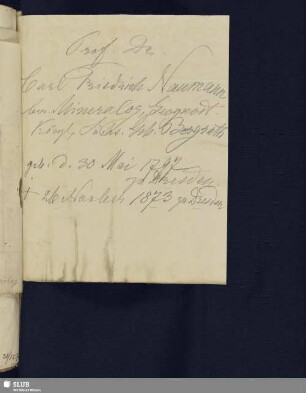 Prof. Dr.
Carl Friedrich Naumann
Mineralog, Geognost.
Königl. Sächs. Geh. Bergrath
geb. d. 30 Mai 1797
zu Dresden
† 26 Novbr. 1873 zu Dresden
SLUB
Wir führen Wissen.